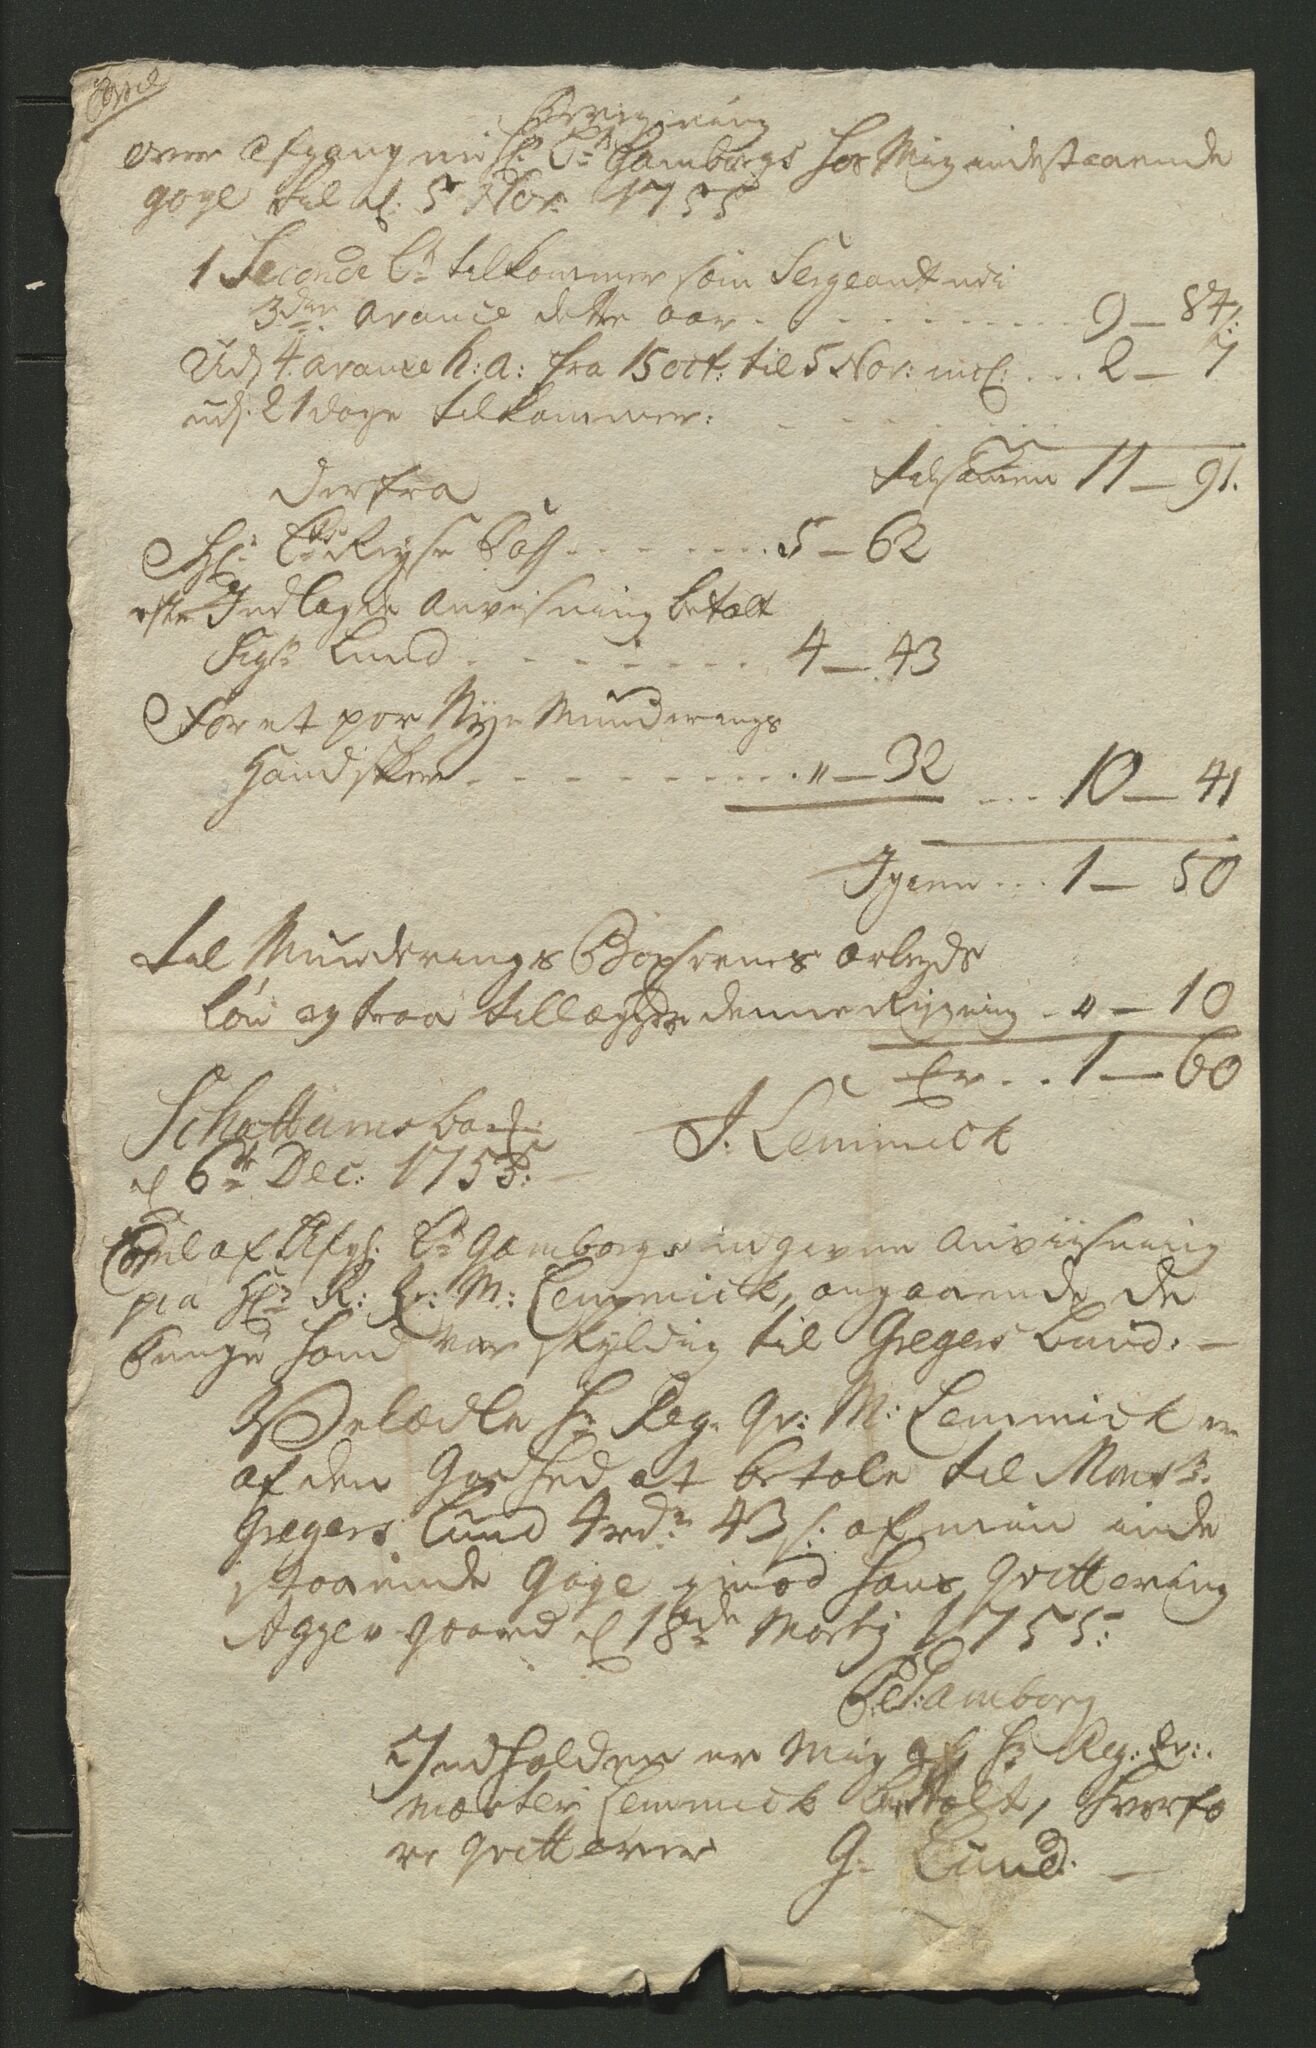 Copie
Beregning
over Afgangne Hr. Lt. Gamborgs hos Mig indestaaende
gage til d: 5 Nov: 1755
1 Seconde Lt: tilkommer som Sergeant udi
3die avance dette aar . . . 9 — 84,
Udj 4. avance h: a: fra 15 oct: til 5 Nov: incl: . . . 2 — 7
udj. 21 dage tilkommer:
tilsamen 11 — 91.
Derfra
Hr: Lts Reyse Pass . . . 5 — 62
efter Indlagde Anvisning betalt
Sigr: Lund . . . 4 — 43
For et par Nye Munderings
Handsker . . . " — 32 . . . 10 — 41
Igien . . . 1 — 50
til Munderings Boxernes arbeyds
løn og traa tillægges denne Regning . " — 10
Er . . 1 — 60
Schottumsba
d 6te Dec: 1755. —
J. Lemmick
Copie af Afg: Lt Gamborgs ingivne Anviisning
paa Hr: R: Qr: M: Lemmick, angaaende de
Penge hand var skyldig til Gregers Lund. —
Velædle Hr Reg: Qr: M: Lemmick er
af den Godhed at betale til Monsr:
Gregers Lund 4 rdr 43 s: af min inde
staaende Gage imod hans Qvittering
Aggergaard d 18de Martij 1755:
P: Gamborg
Indholden er Mig af Hr Reg: Qr:
Mæster Lemmick betalt, hvorfo
re Qvitterer G: Lund. —